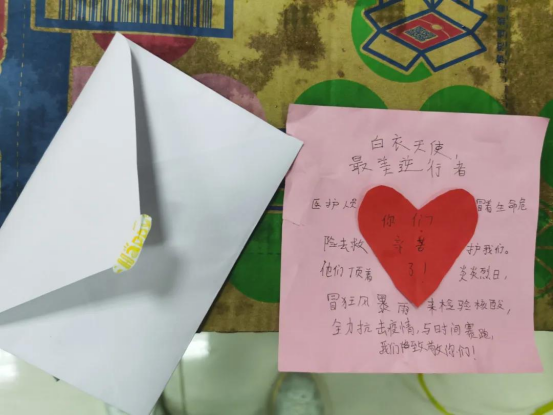 白衣天使,
最美逆行者
医护人员 你们 冒着生命危
险去救 辛苦 护我们。
他们顶着 了! 炎炎烈日,
冒狂风暴雨 来检验核酸,
全力抗击疫情,与时间赛跑,
我们 致敬你们!